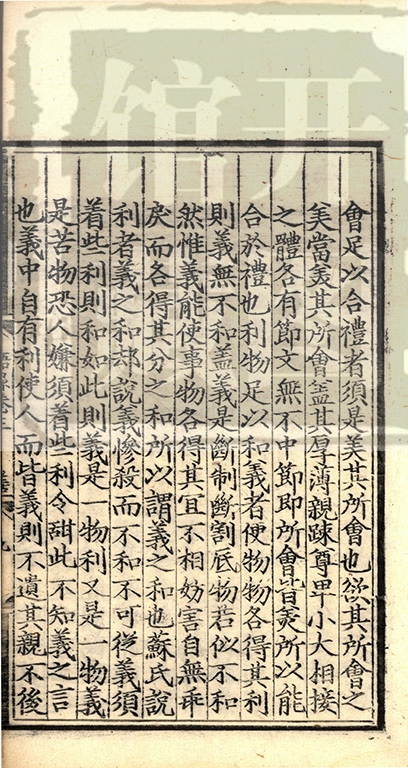 會足以合禮者須是美其所會也然其所會之
美當美其所會蓋其厚薄親踈尊卑小大相接
之體各有節文無不中節即所會皆美所以能
合於禮也利物足以和義者使物物各得其利
則義無不和蓋義是斷制斷割底物若似不和
然惟義能使事物各得其宜不相妨害自無乖
戾而各得其分之和所以謂義之和也蘇氏說
利者義之和却說義慘殺而不和不可從義須
着些利則和如此則義是一物利又是一物義
是苦物恐人嫌須着些利令甜此不知義之言
也義中自有利使人而皆義則不遺其親不後